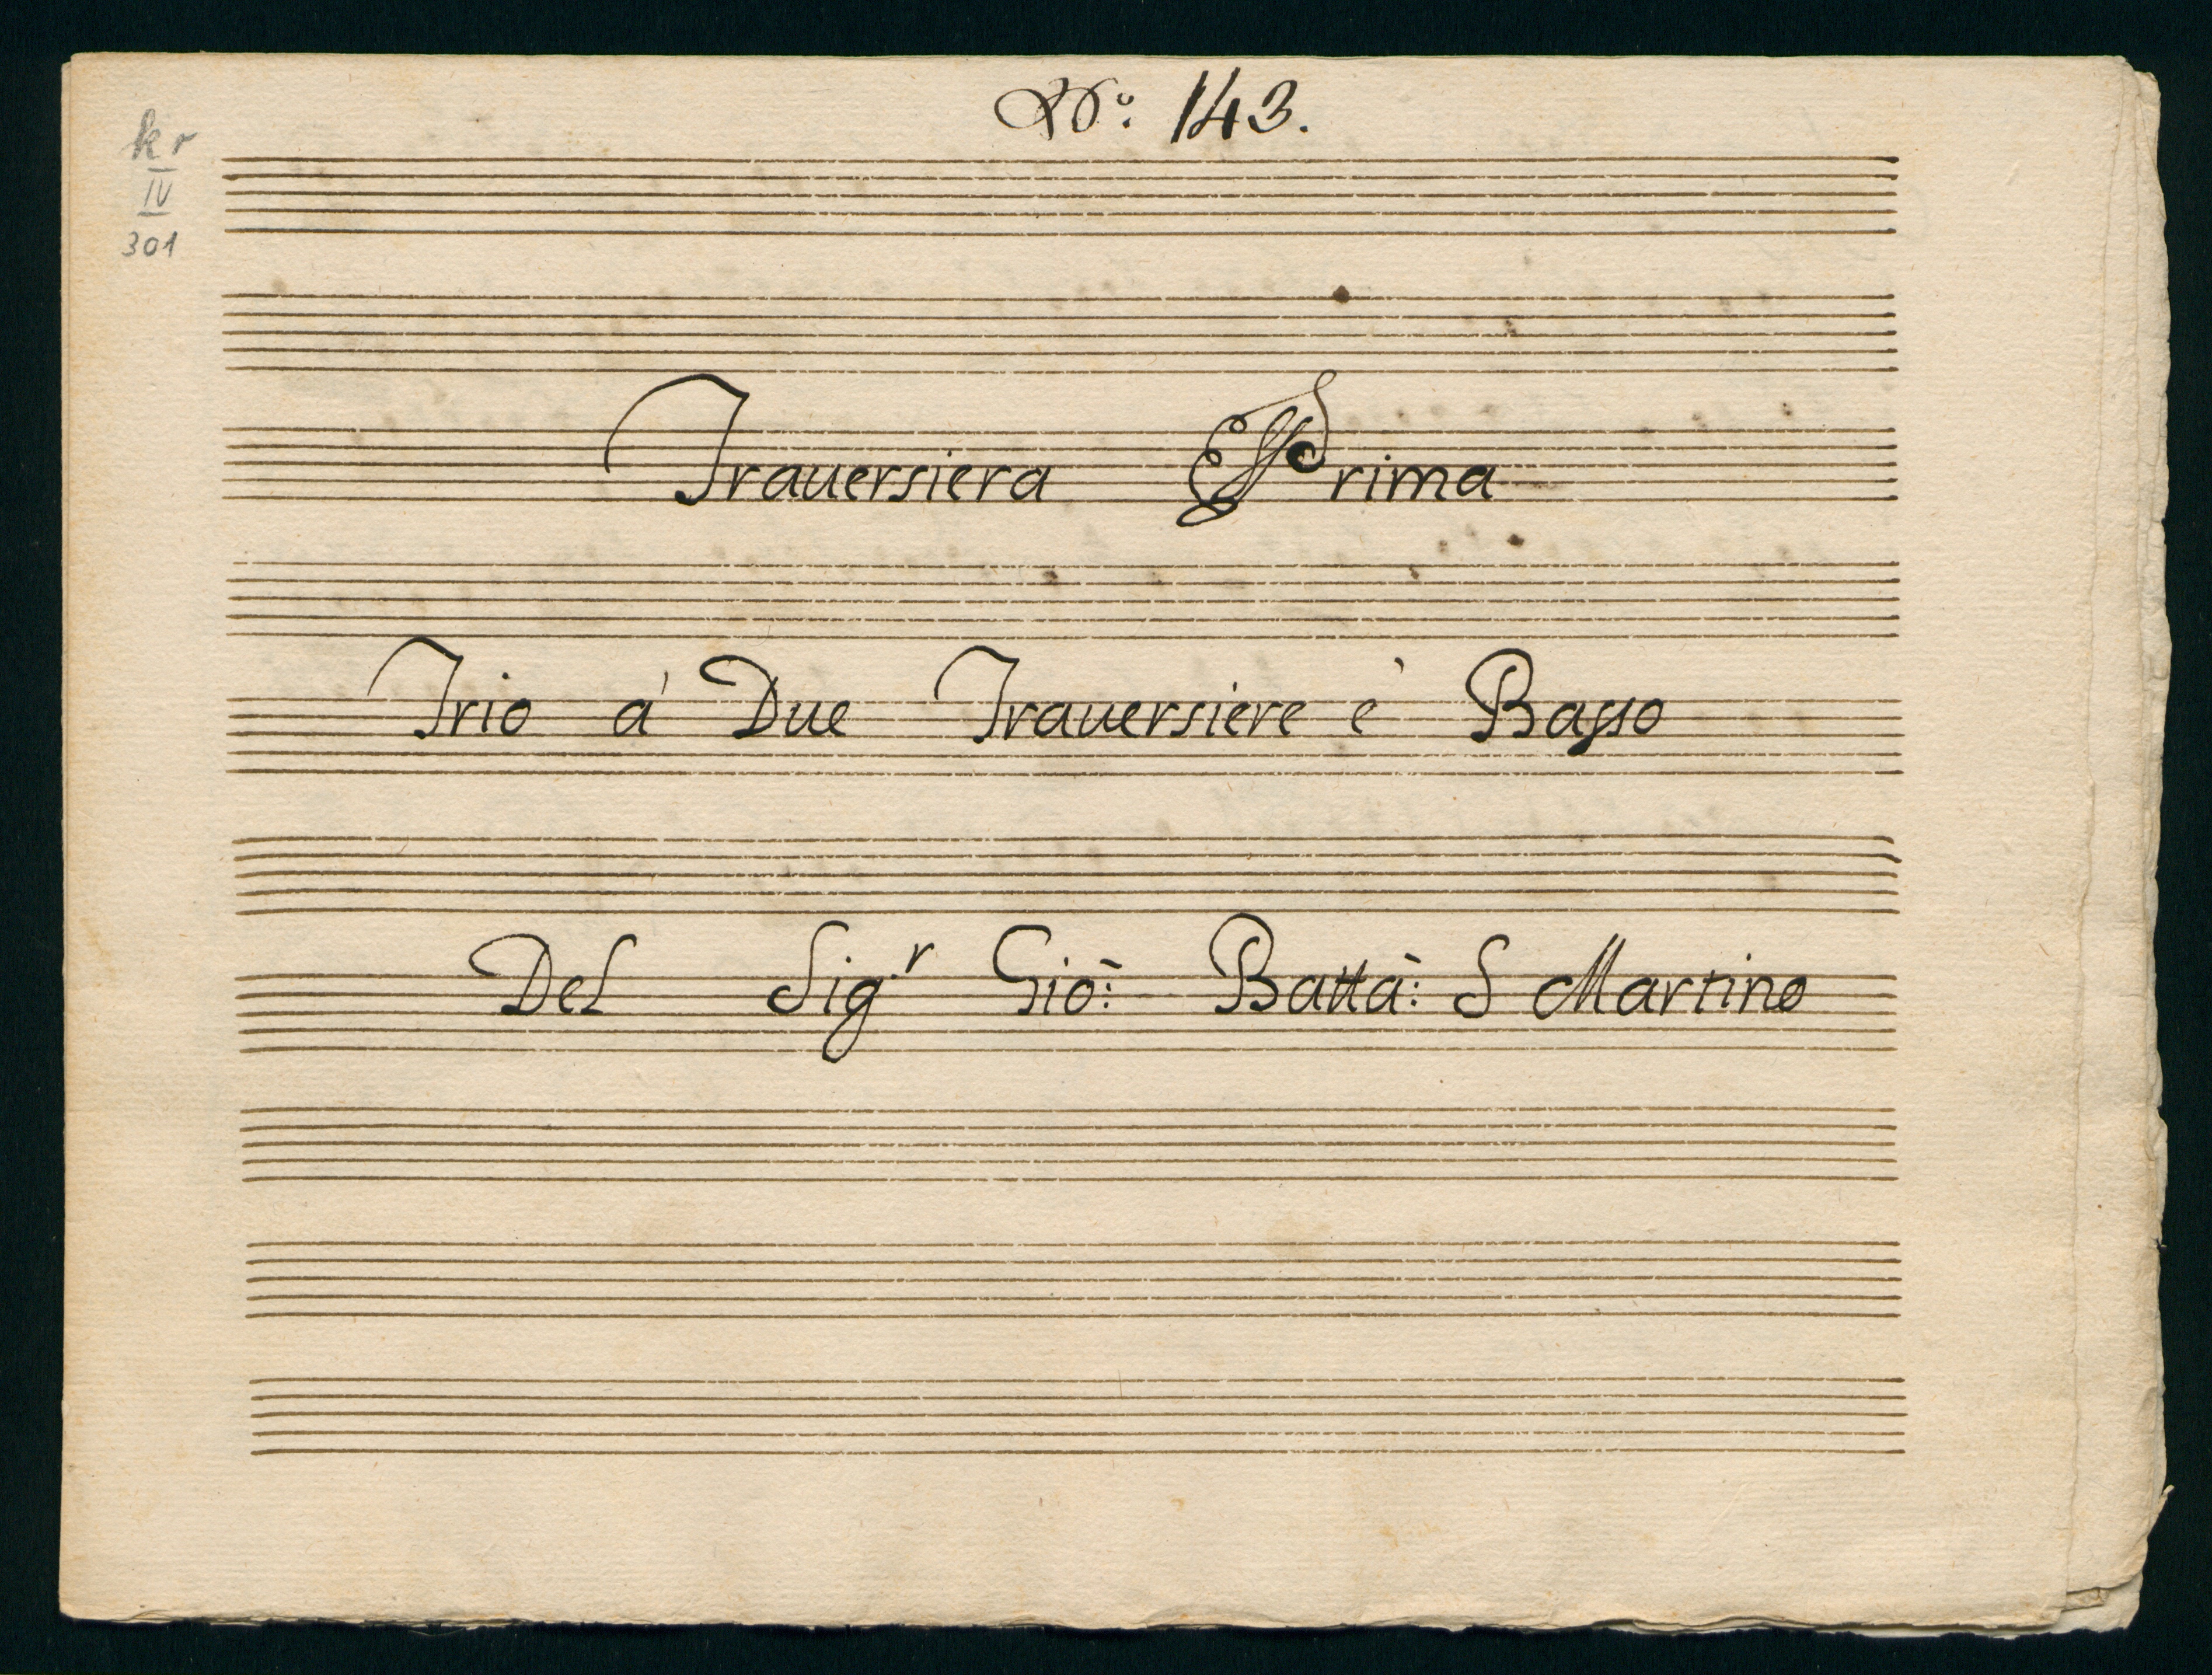 No: 143.
kr
IV
301
Trauersiera Prima
Trio á Due Trauersiere è Basso
Del Sig.r Giō: Battā: S Martino